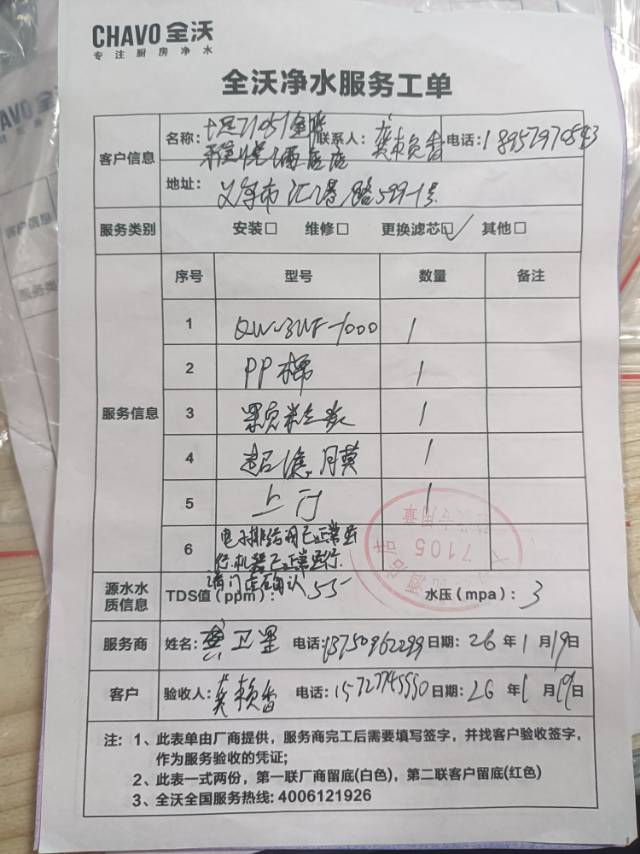 CHAVO 全沃
专注厨房净水
全沃净水服务工单
客户信息
名称：
联系人：龚赖香
电话：18957970543
地址：义乌市 路599-1号
服务类别 安装□ 维修□ 更换滤芯☑ 其他□
服务信息
序号 型号 数量 备注
1 QW-3UF-1000 1
2 PP棉 1
3 颗粒炭 1
4 超滤膜 1
5 上门 1
6 电子排结阀已正常运
行,机器已正常运行.
请门店确认
源水水质信息 TDS值（ppm）：55 水压（mpa）：3
服务商 姓名：龚卫星 电话：13750962299 日期：26年1月19日
客户 验收人：龚赖香 电话：15727745550 日期：26年1月19日
注：1、此表单由厂商提供，服务商完工后需要填写签字，并找客户验收签字，
作为服务验收的凭证；
2、此表一式两份，第一联厂商留底(白色)，第二联客户留底(红色)
3、全沃全国服务热线: 4006121926
7105